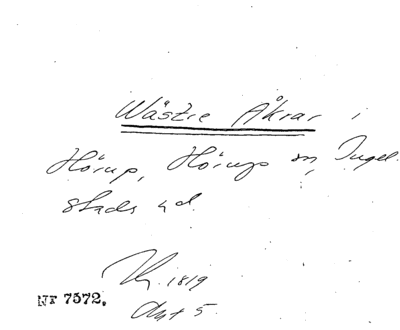 Wästre Åkrar i
Hörup, Hörups sn, Ingel-
stads hd.
1819
Akt 5.
Nr 7572.